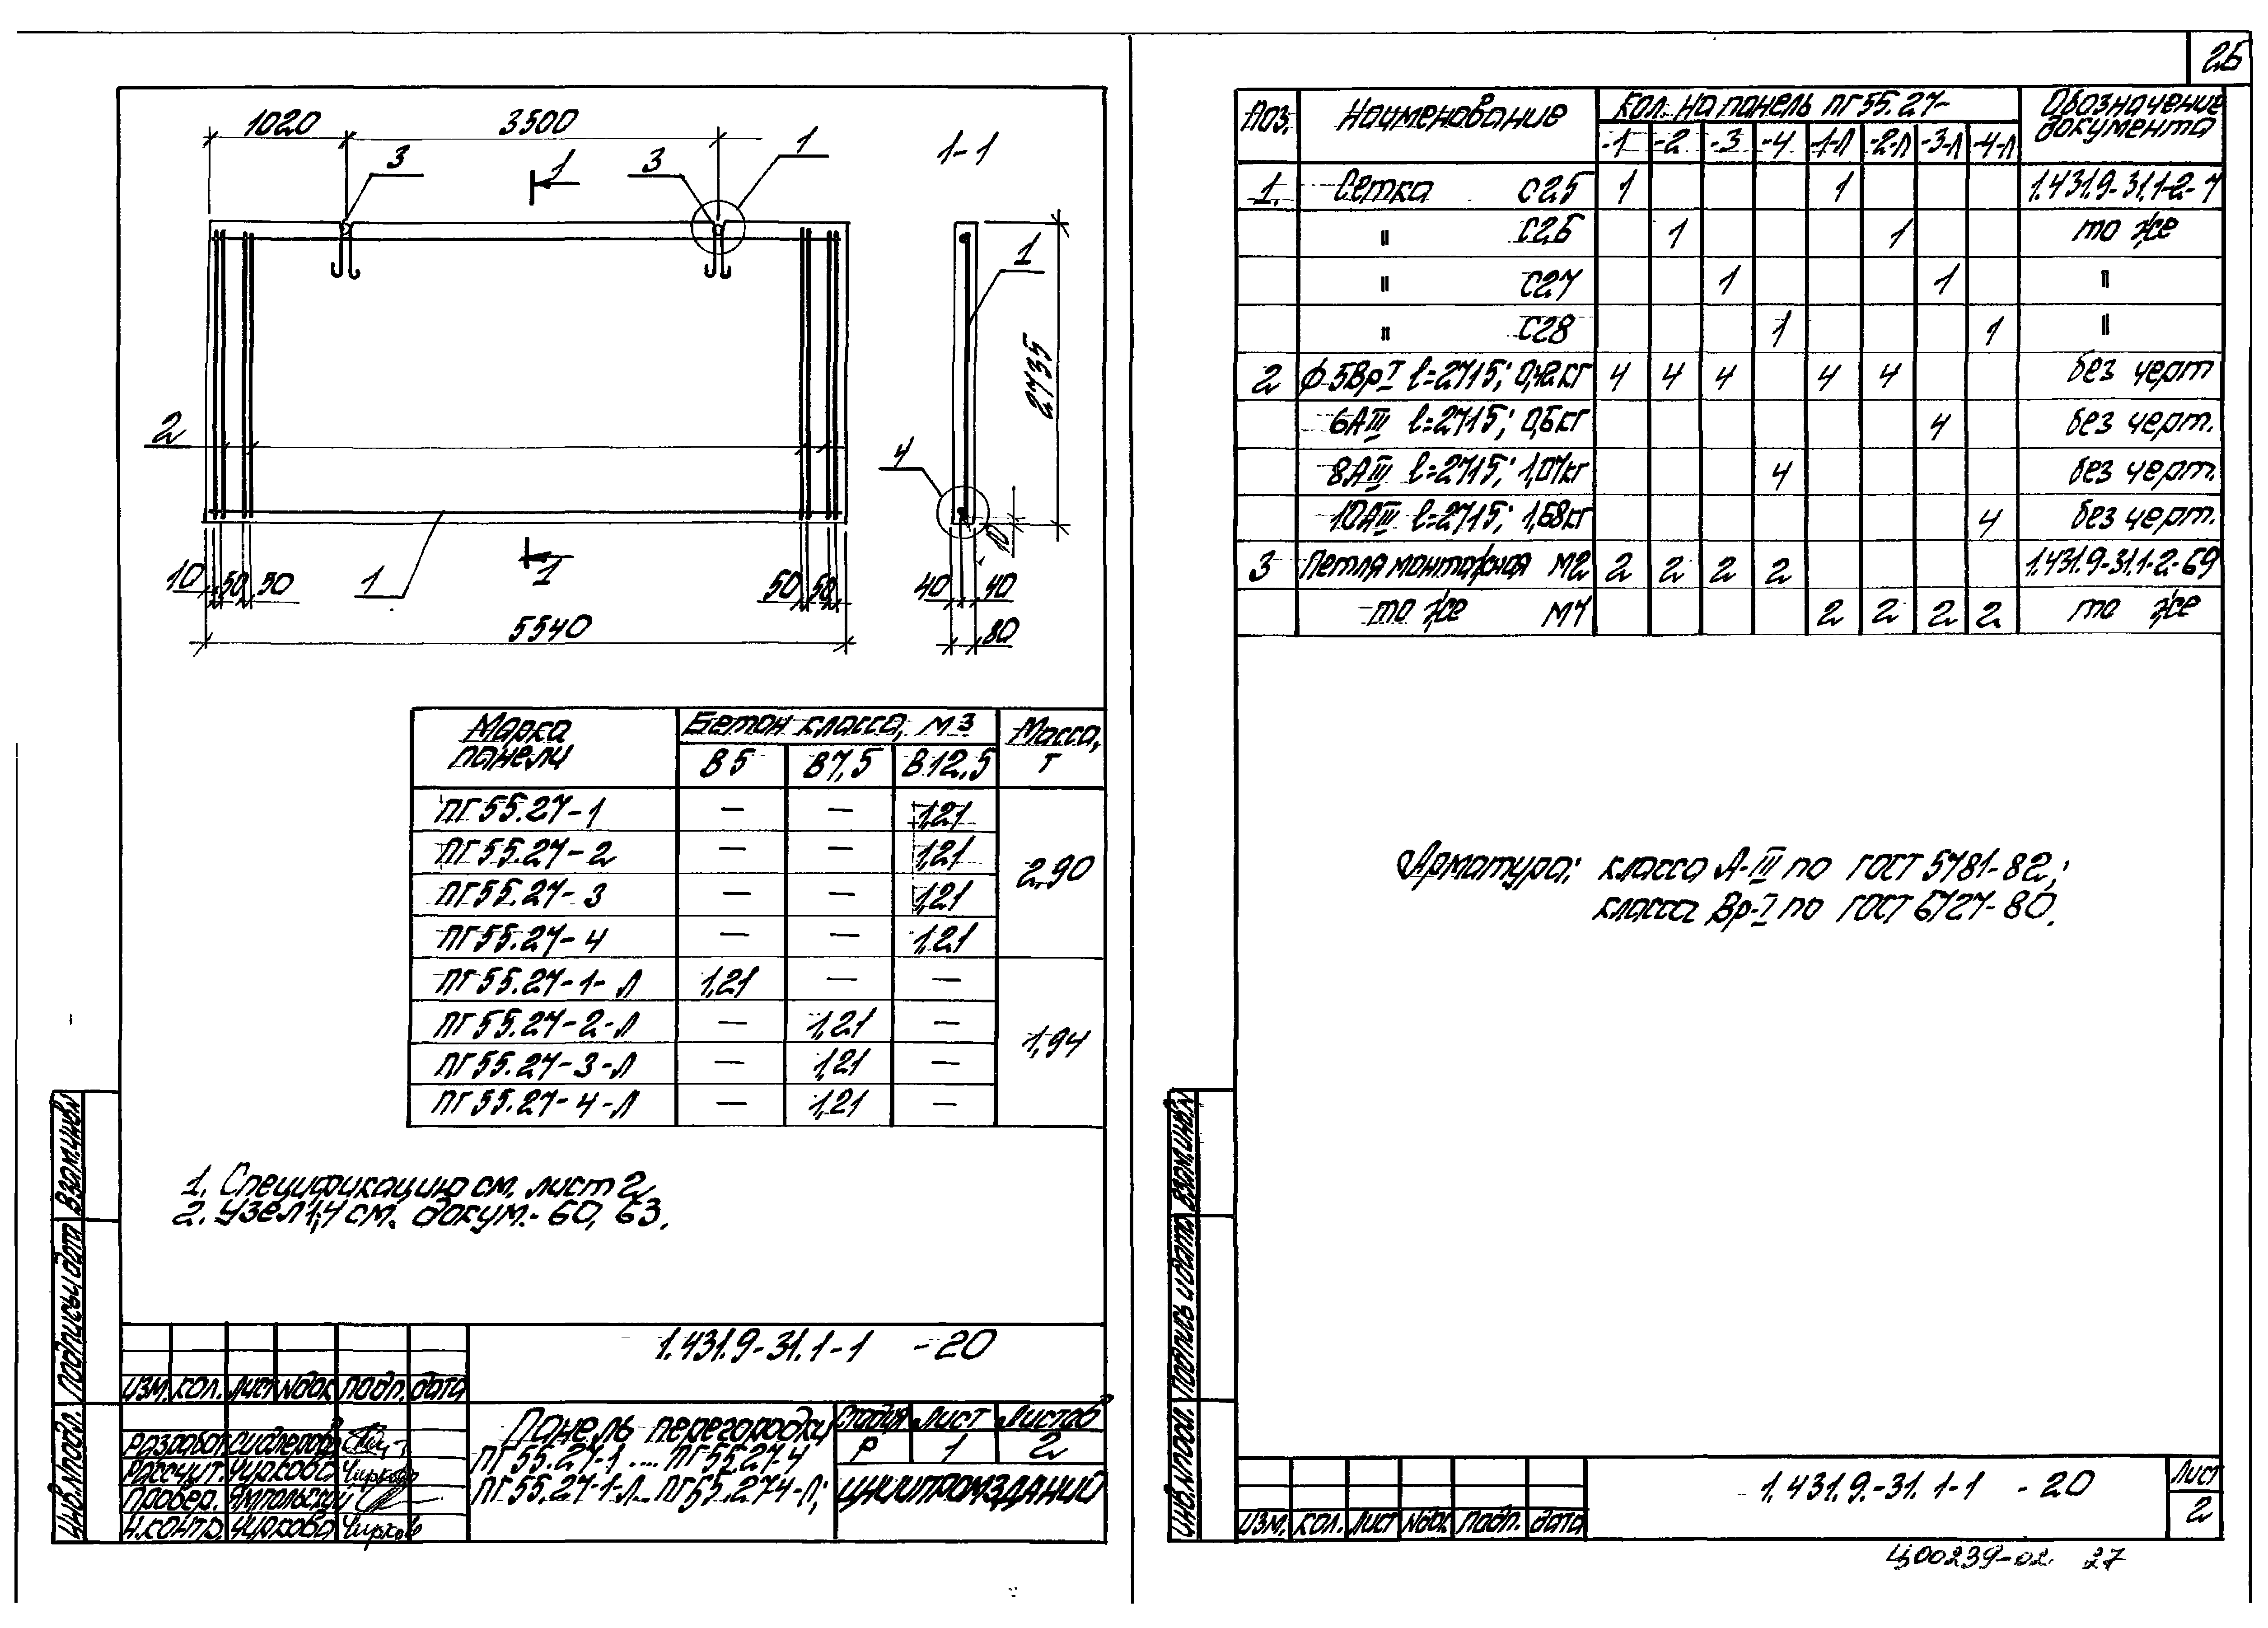 1020
3500
1
1-1
3
1
3
1
2735
2
4
10
1
1
10
50
50
50
50
40
40
5540
80
Марка панели
Бетон класса, м3
Масса, т
В5
В7,5
В12,5
ПГ55.27-1 — — 1,21
ПГ55.27-2 — — 1,21
2,90
ПГ55.27-3 — — 1,21
ПГ55.27-4 — — 1,21
ПГ55.27-1-Л 1,21 — —
ПГ55.27-2-Л — 1,21 —
1,94
ПГ55.27-3-Л — 1,21 —
ПГ55.27-4-Л — 1,21 —
1. Спецификацию см. лист 2
2. Узел 1,4 см. докум.- 60, 63.
Взам.инв.N
Подпись и дата
Инв.N подл.
1.431.9-31.1-1 -20
Изм. Кол. Лист Nдок. Подп. Дата
Разработ.
Рассчит. Чиркова Чиркова
Провер. Ямпольский
Н.контр. Чиркова Чирков
Панель перегородки
ПГ55.27-1 .... ПГ55.27-4
ПГ55.27-1-Л... ПГ55.274-Л;
Стадия Лист Листов
Р 1 2
ЦНИИПРОМЗДАНИЙ
26
Поз. Наименование Кол. на панель ПГ55.27- Обозначение документа
-1 -2 -3 -4 -1-Л -2-Л -3-Л -4-Л
1 Сетка С25 1 1 1.431.9-31.1-2-7
" С26 1 1 то же
" С27 1 1 "
" С28 1 1 "
2 ф5ВрI l=2715; 0,42кг 4 4 4 4 4 без черт
6АIII l=2715; 0,6кг 4 без черт.
8АIII l=2715; 1,07кг 4 без черт.
10АIII l=2715; 1,68кг 4 без черт.
3 Петля монтажная М2 2 2 2 2 1.431.9-31.1-2-69
то же М7 2 2 2 2 то же
Арматура: класса А-III по ГОСТ 5781-82;
класса Вр-I по ГОСТ 6727-80.
Взам.инв.N
Подпись и дата
Инв.N подл.
1.431.9.-31.1-1 -20
Лист
2
Изм. Кол. Лист Nдок. Подп. Дата
Ц00239-02 27